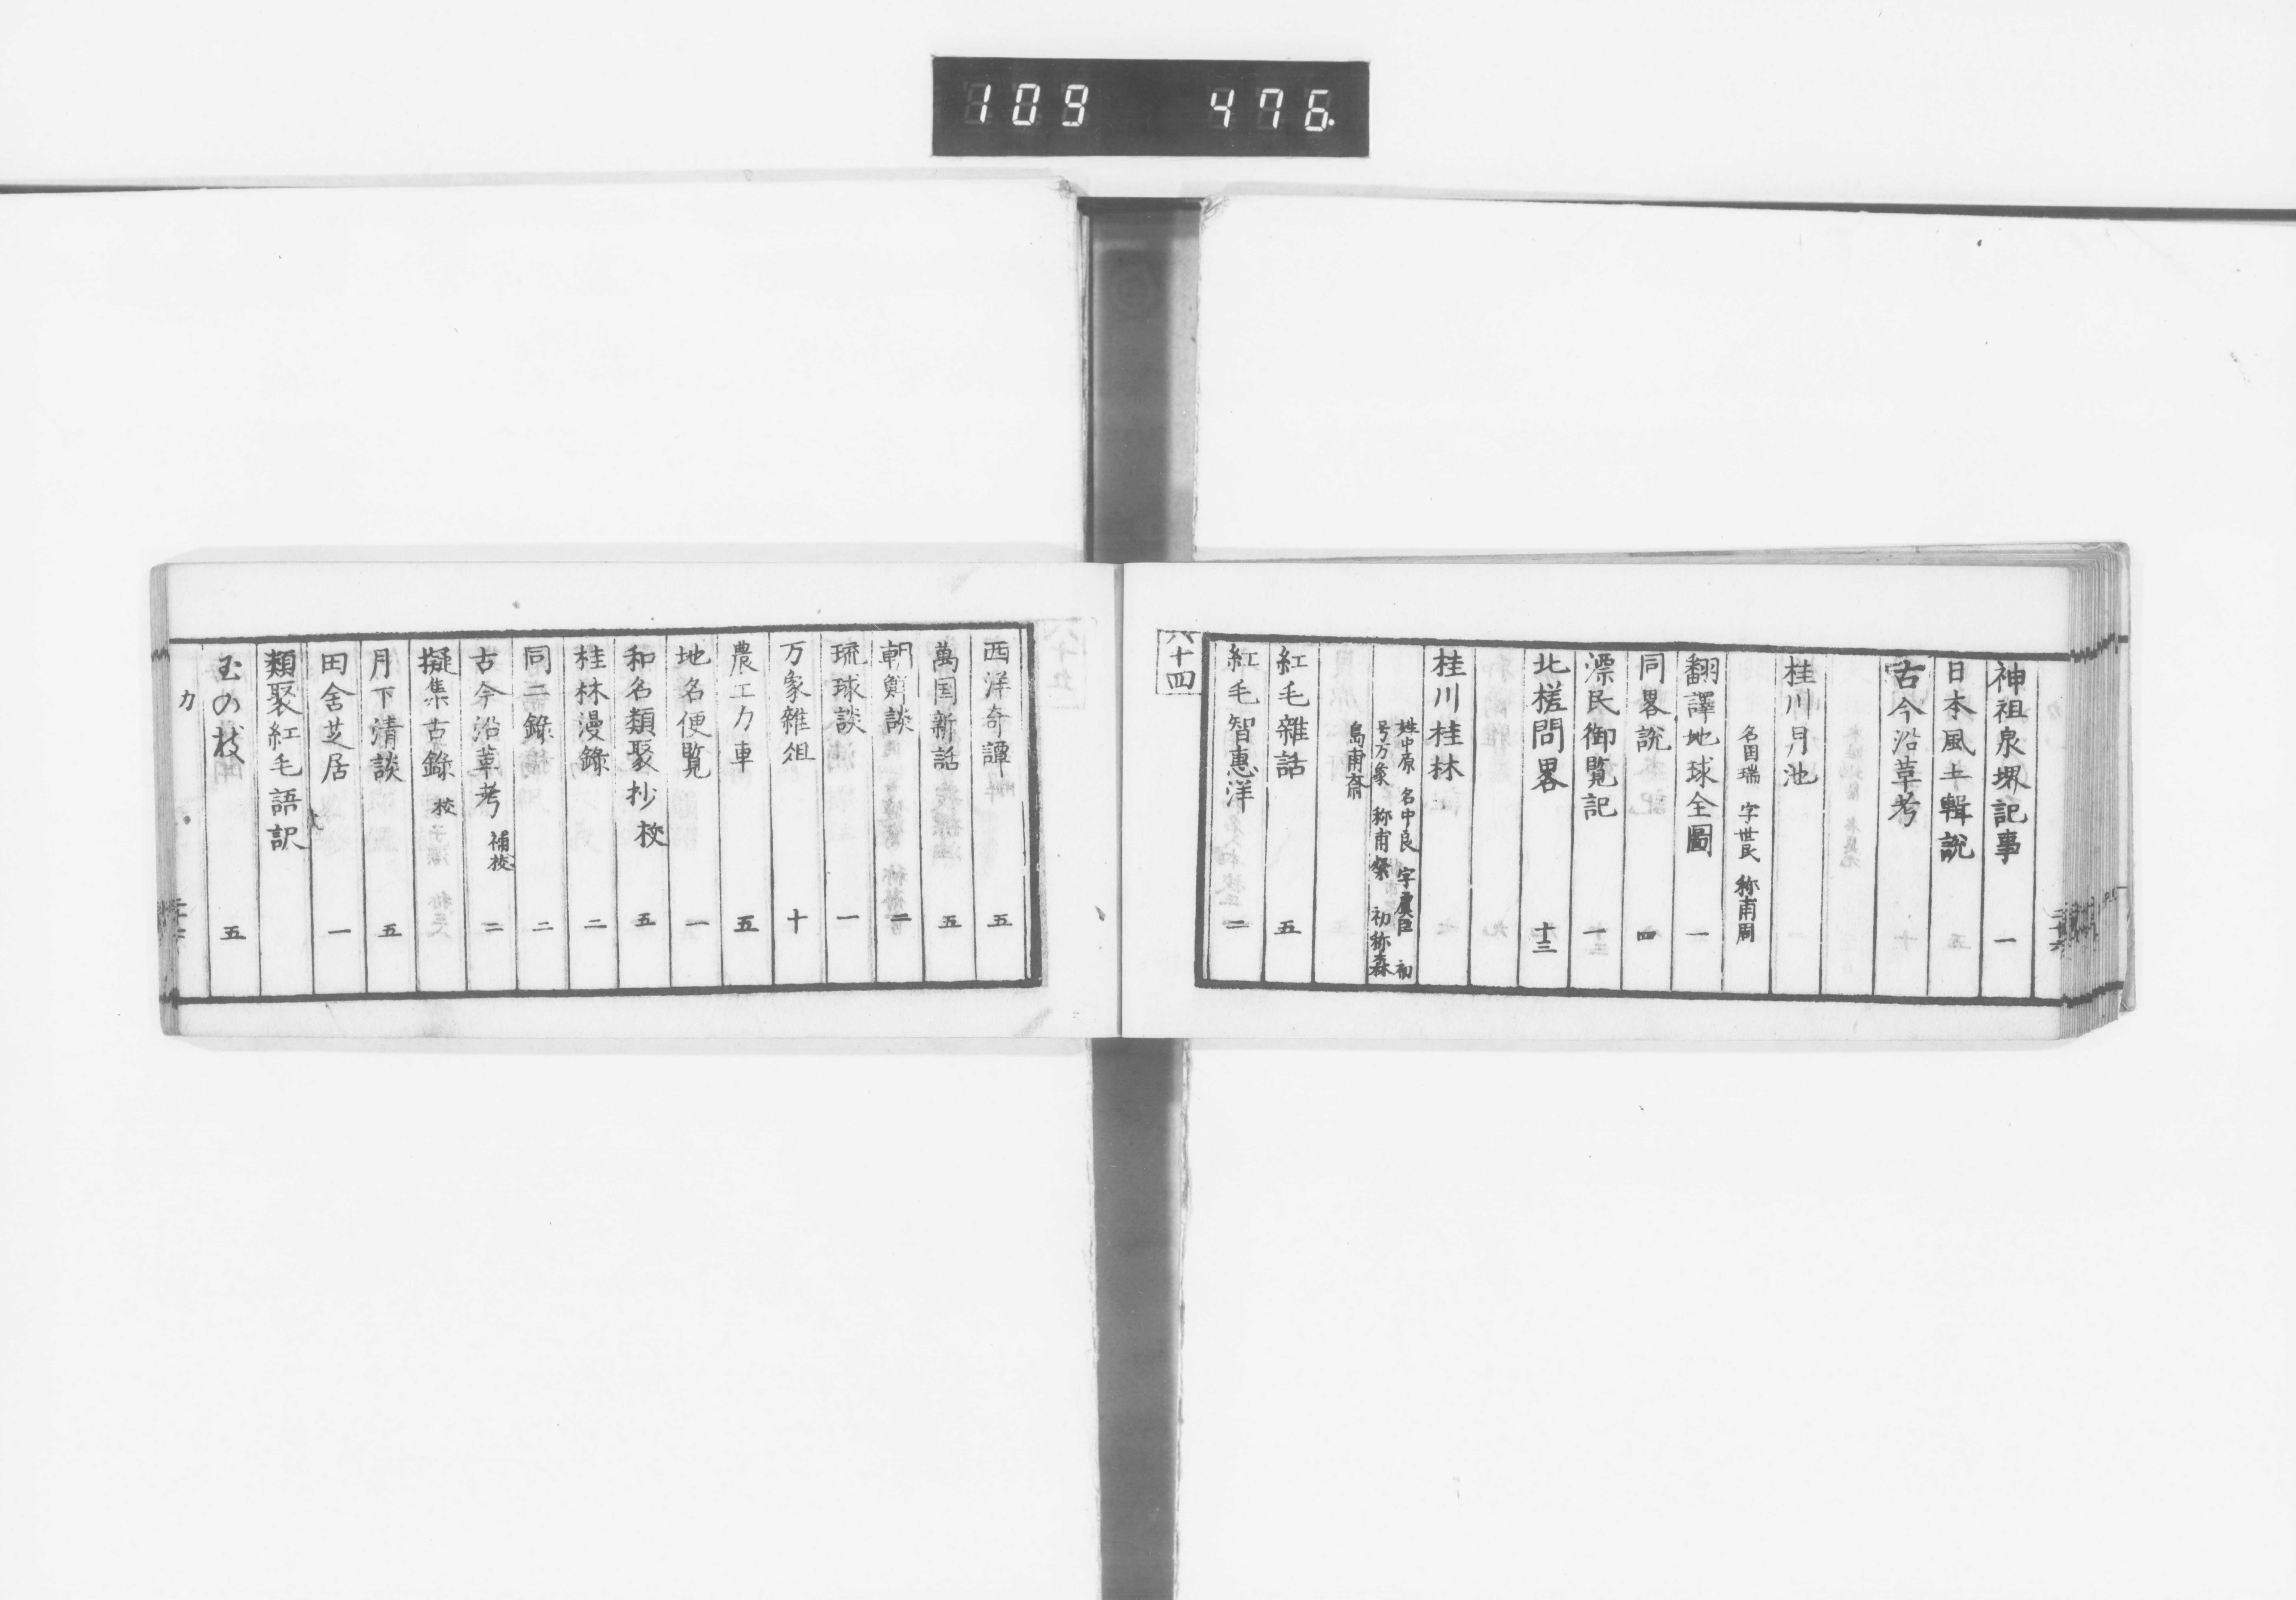 109 476
神祖泉堺記事 一
日本風土輯說
古今沿革考
桂川月池
名国瑞 字世民 称甫周
翻譯地球全圖 一
同畧說 四
漂民御覧記 一
北槎問畧 十三
桂川桂林
姓中原 名中良 字虞臣 初
号万象 称甫粲 初称森
島甫斎
紅毛雜話 五
紅毛智惠洋 二
六十四
西洋奇譚 五
萬国新話 五
朝鮮談 二
琉球談 一
万象雜俎 十
農工力車 五
地名便覧 一
和名類聚抄 校 五
桂林漫錄 二
同二錄 二
古今沿革考 補校 二
擬集古錄 校
月下清談 五
田舍芝居 一
類聚紅毛語訳
玉の枝 五
カ